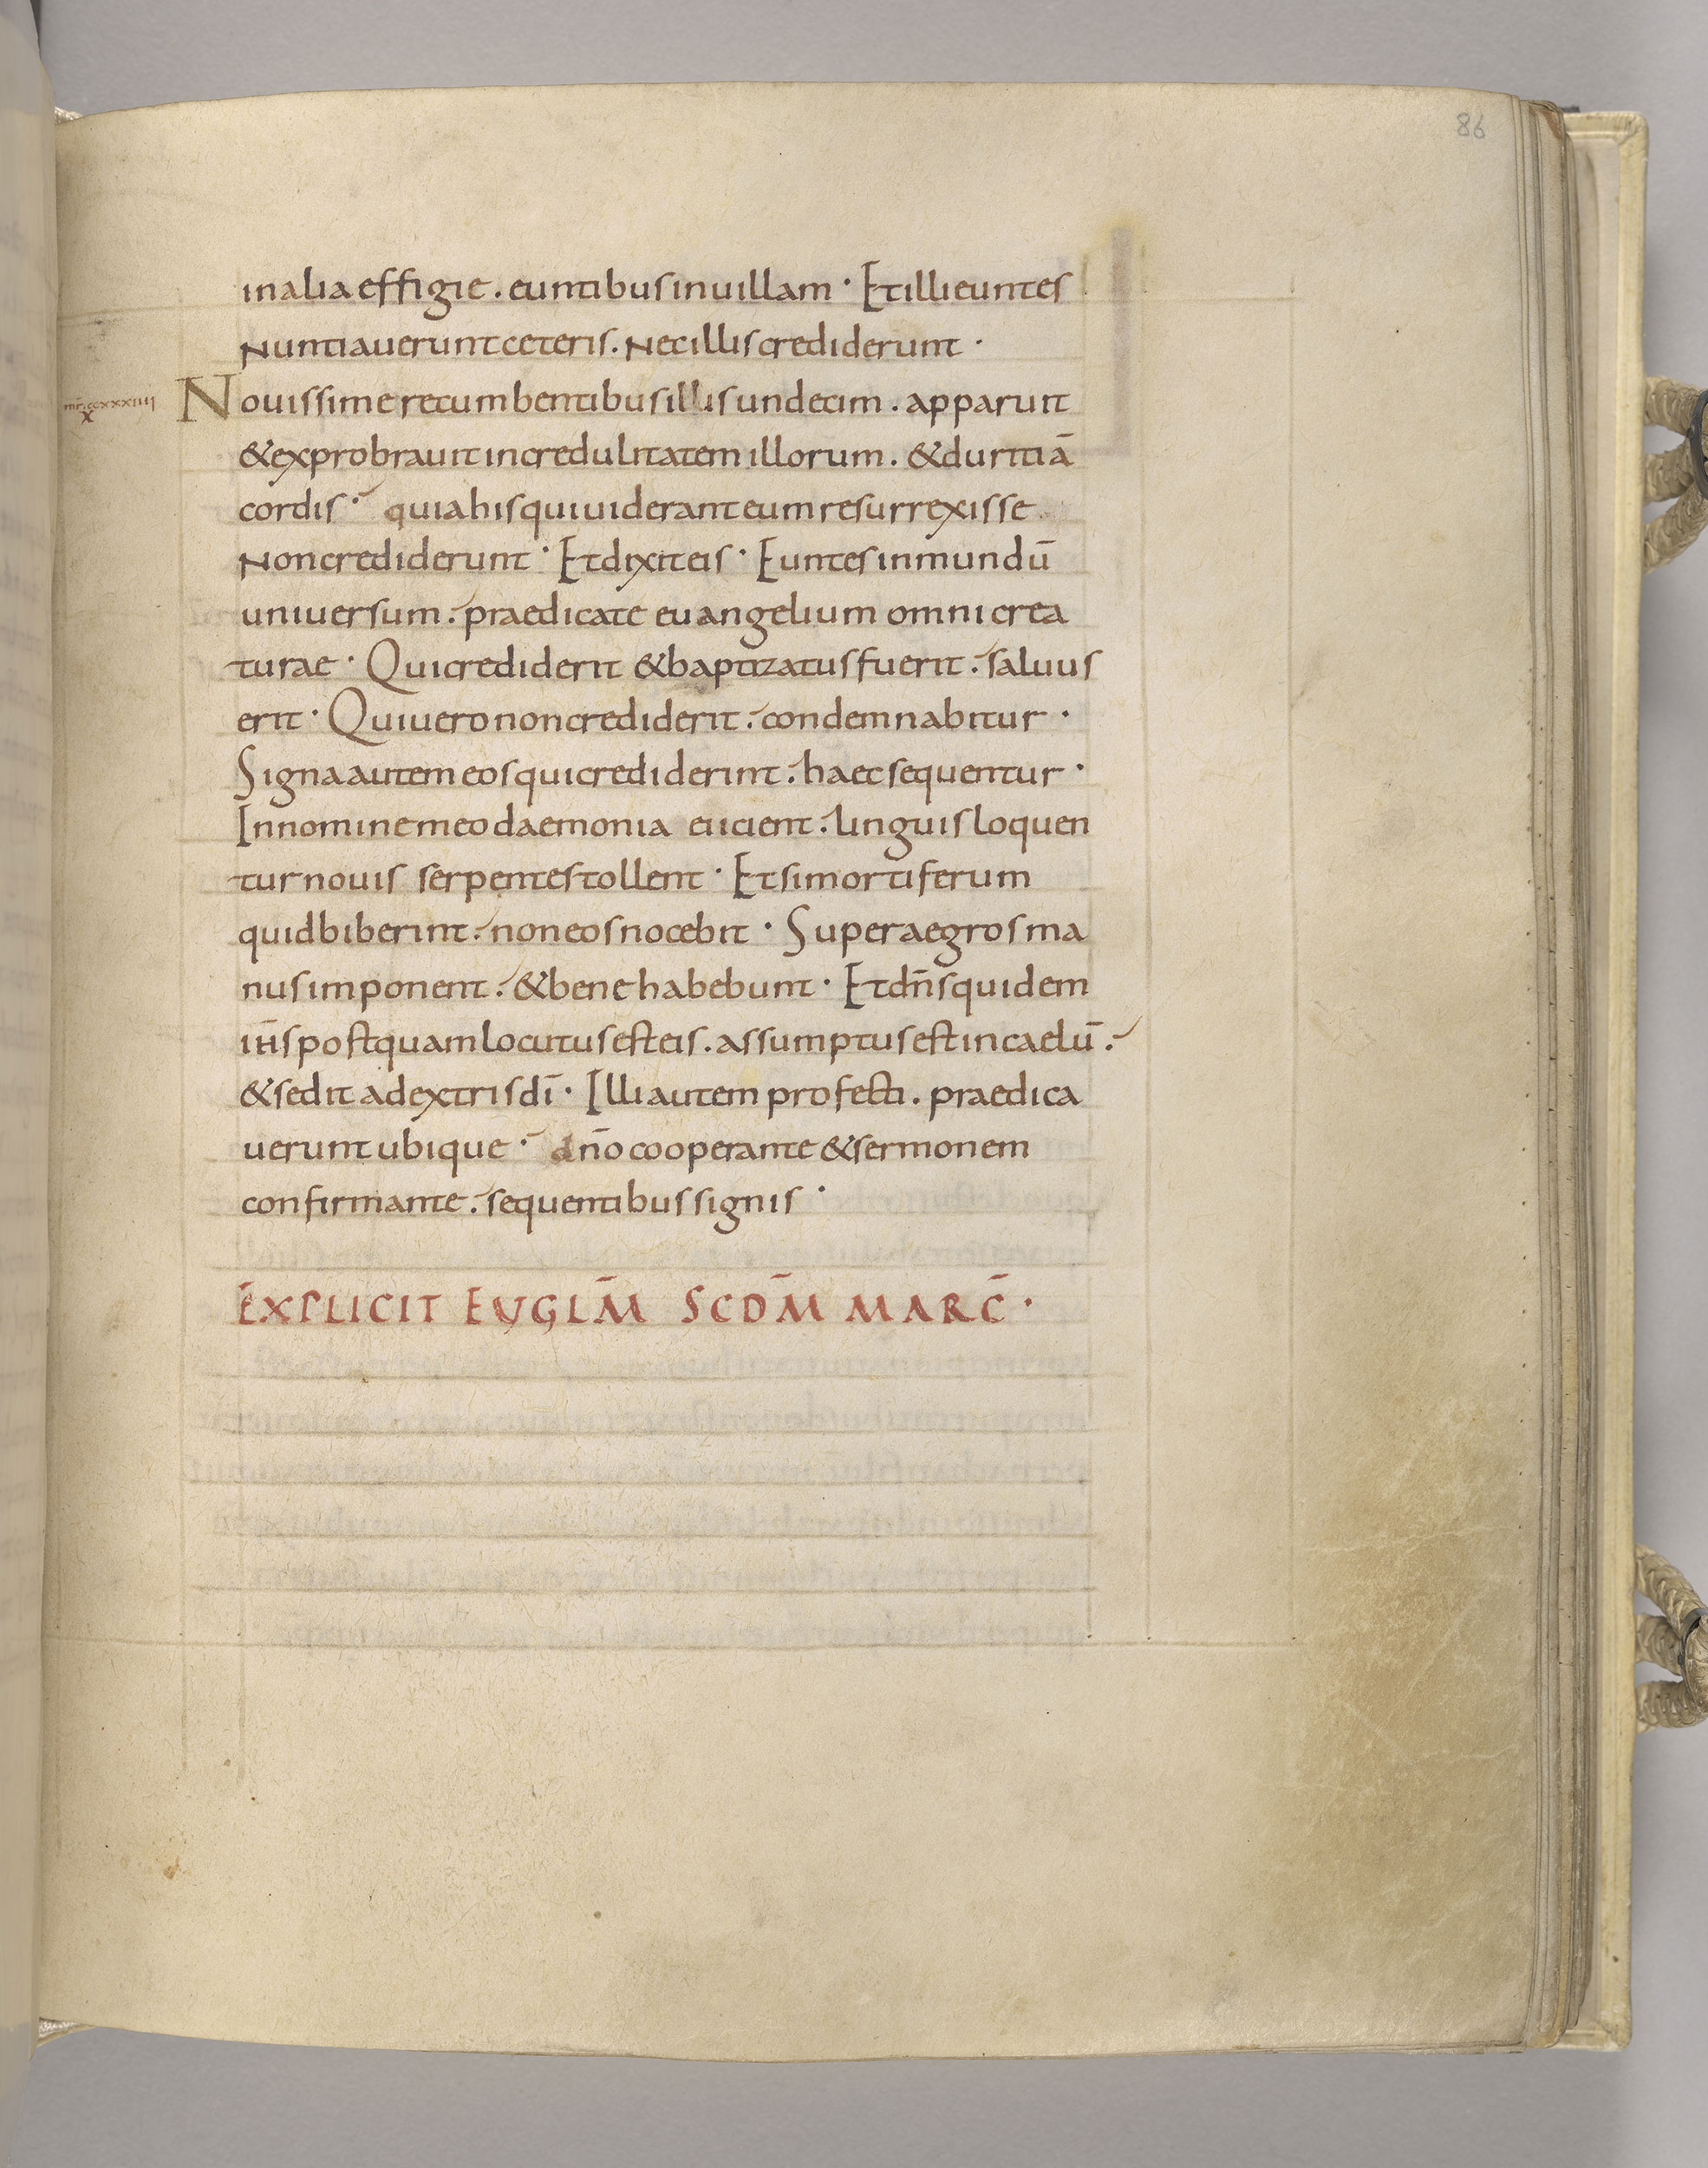 86
in alia effigie . euntibus in uillam · Et illi euntes
Nuntiauerunt ceteris . Nec illis crediderunt ·
mr̄ . ccxxxiiii
x
Nouissime recumbentibus illis undecim . apparuit
& exprobrauit incredulitatem illorum . & duritiā
cordis · quia his qui uiderant eum resurrexisse
Non crediderunt · Et dixit eis · Euntes in mundū
uniuersum . praedicate euangelium omni crea
turae · Qui crediderit & baptizatus fuerit . saluus
erit · Qui uero non crediderit . condemnabitur ·
Signa autem eos qui crediderint . haec sequentur ·
In nomine meo daemonia eicient . linguis loquen
tur nouis serpentes tollent · Et si mortiferum
quid biberint . non eos nocebit · Super aegros ma
nus imponent . & bene habebunt · Et dn̄s quidem
ih̄s postquam locutus est eis . assumptus est in caelū .
& sedit a dextris dī · Illi autem profecti . praedica
uerunt ubique · dn̄o cooperante & sermonem
confirmante . sequentibus signis ·
EXPLICIT EUGLM̄ SCDM̄ MARC̄ ·